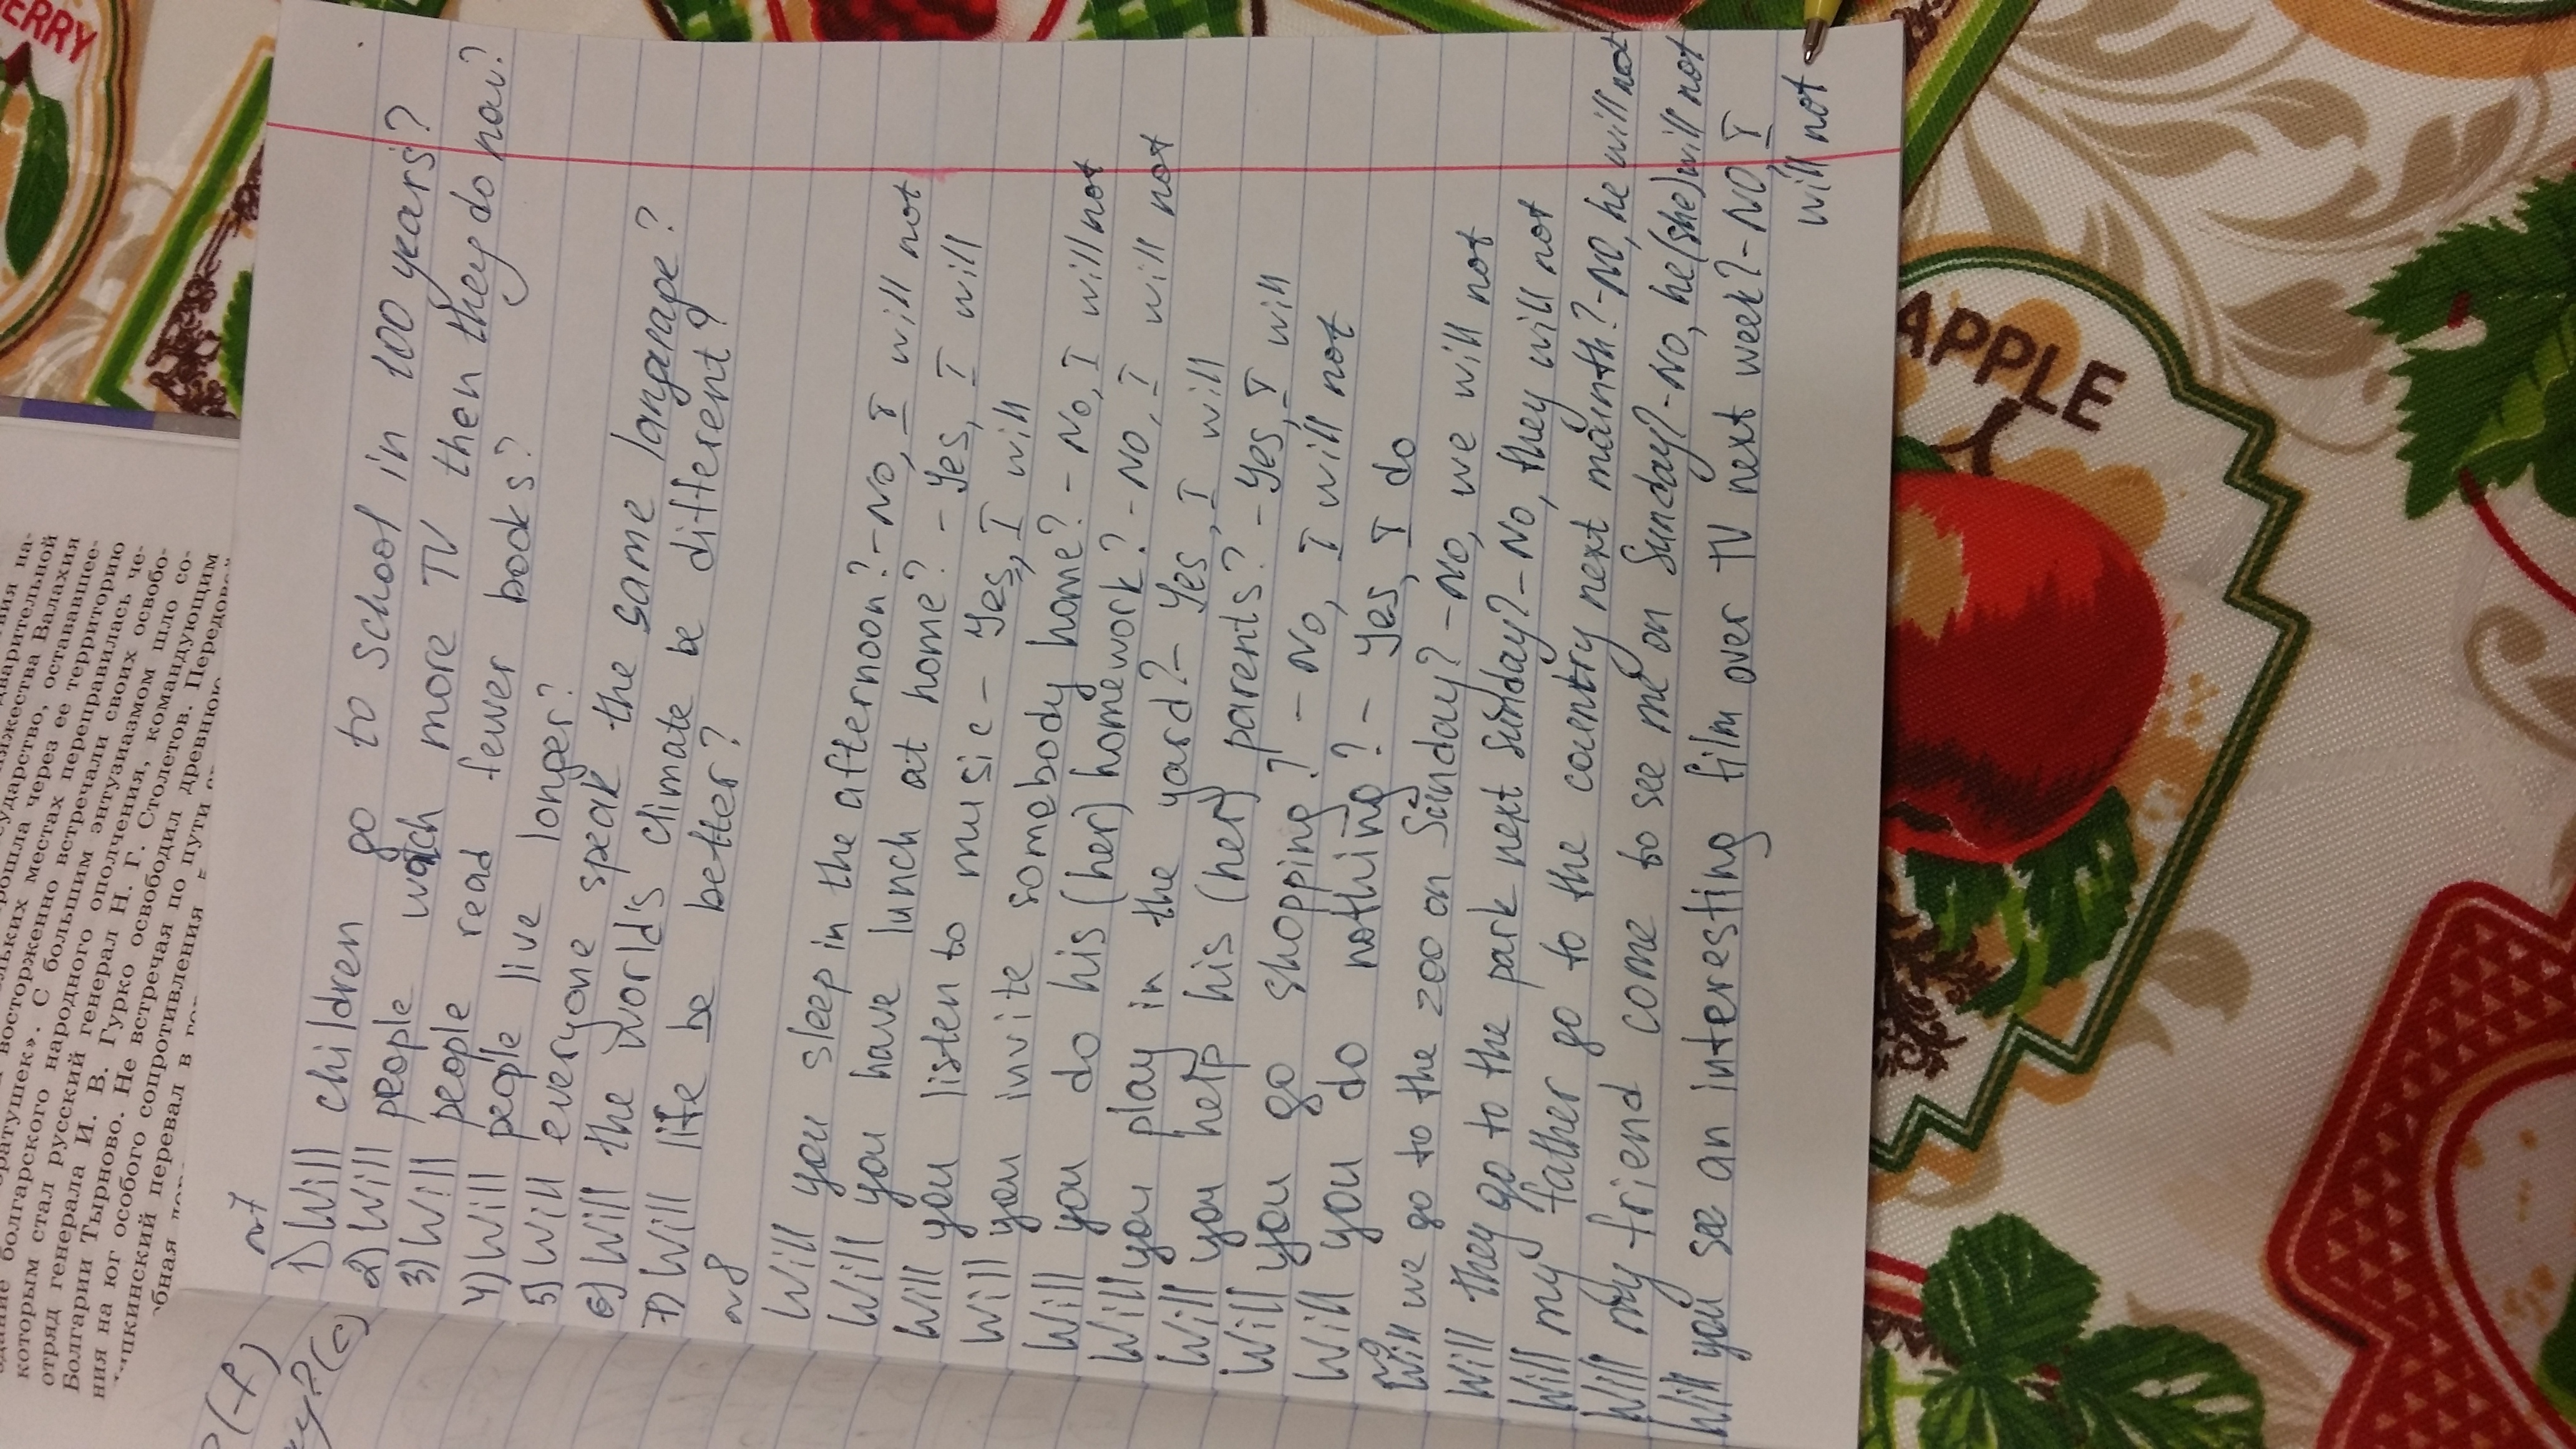 ERRY
APPLE
дварительной
княжества Валахия
сударство, остававшее-
рошла через ее территорию
ельких местах переправилась че-
восторженно встречали своих освобо-
братушек». С большим энтузиазмом шло со-
здание болгарского народного ополчения, командующим
которым стал русский генерал Н. Г. Столетов. Передовой
отряд генерала И. В. Гурко освободил древнюю
Болгарии Тырново. Не встречая по пути
ния на юг особого сопротивления
ипкинский перевал в
? (f)
ay? (c)
№7
1) Will children go to school in 100 years?
2) Will people watch more TV then they do now?
3) Will people read fewer books?
4) Will people live longer?
5) Will everyone speak the same langrape?
6) Will the world's climate be different?
7) Will life be better?
№8
Will you sleep in the afternoon? - No, I will not
Will you have lunch at home? - Yes, I will
Will you listen to music - Yes, I will
Will you invite somebody home? - No, I will not
Will you do his (her) homework? - No, I will not
Will you play in the yard? - Yes, I will
Will you help his (her) parents? - Yes, I will
Will you go shopping? - No, I will not
Will you do nothing? - Yes, I do
№9
Will we go to the zoo on Sunday? - No, we will not
Will they go to the park next Sunday? - No, they will not
Will my father go to the country next mounth? - No, he will not
Will my friend come to see me on Sunday? - No, he (she) will not
Will you see an interesting film over TV next week? - No I
will not